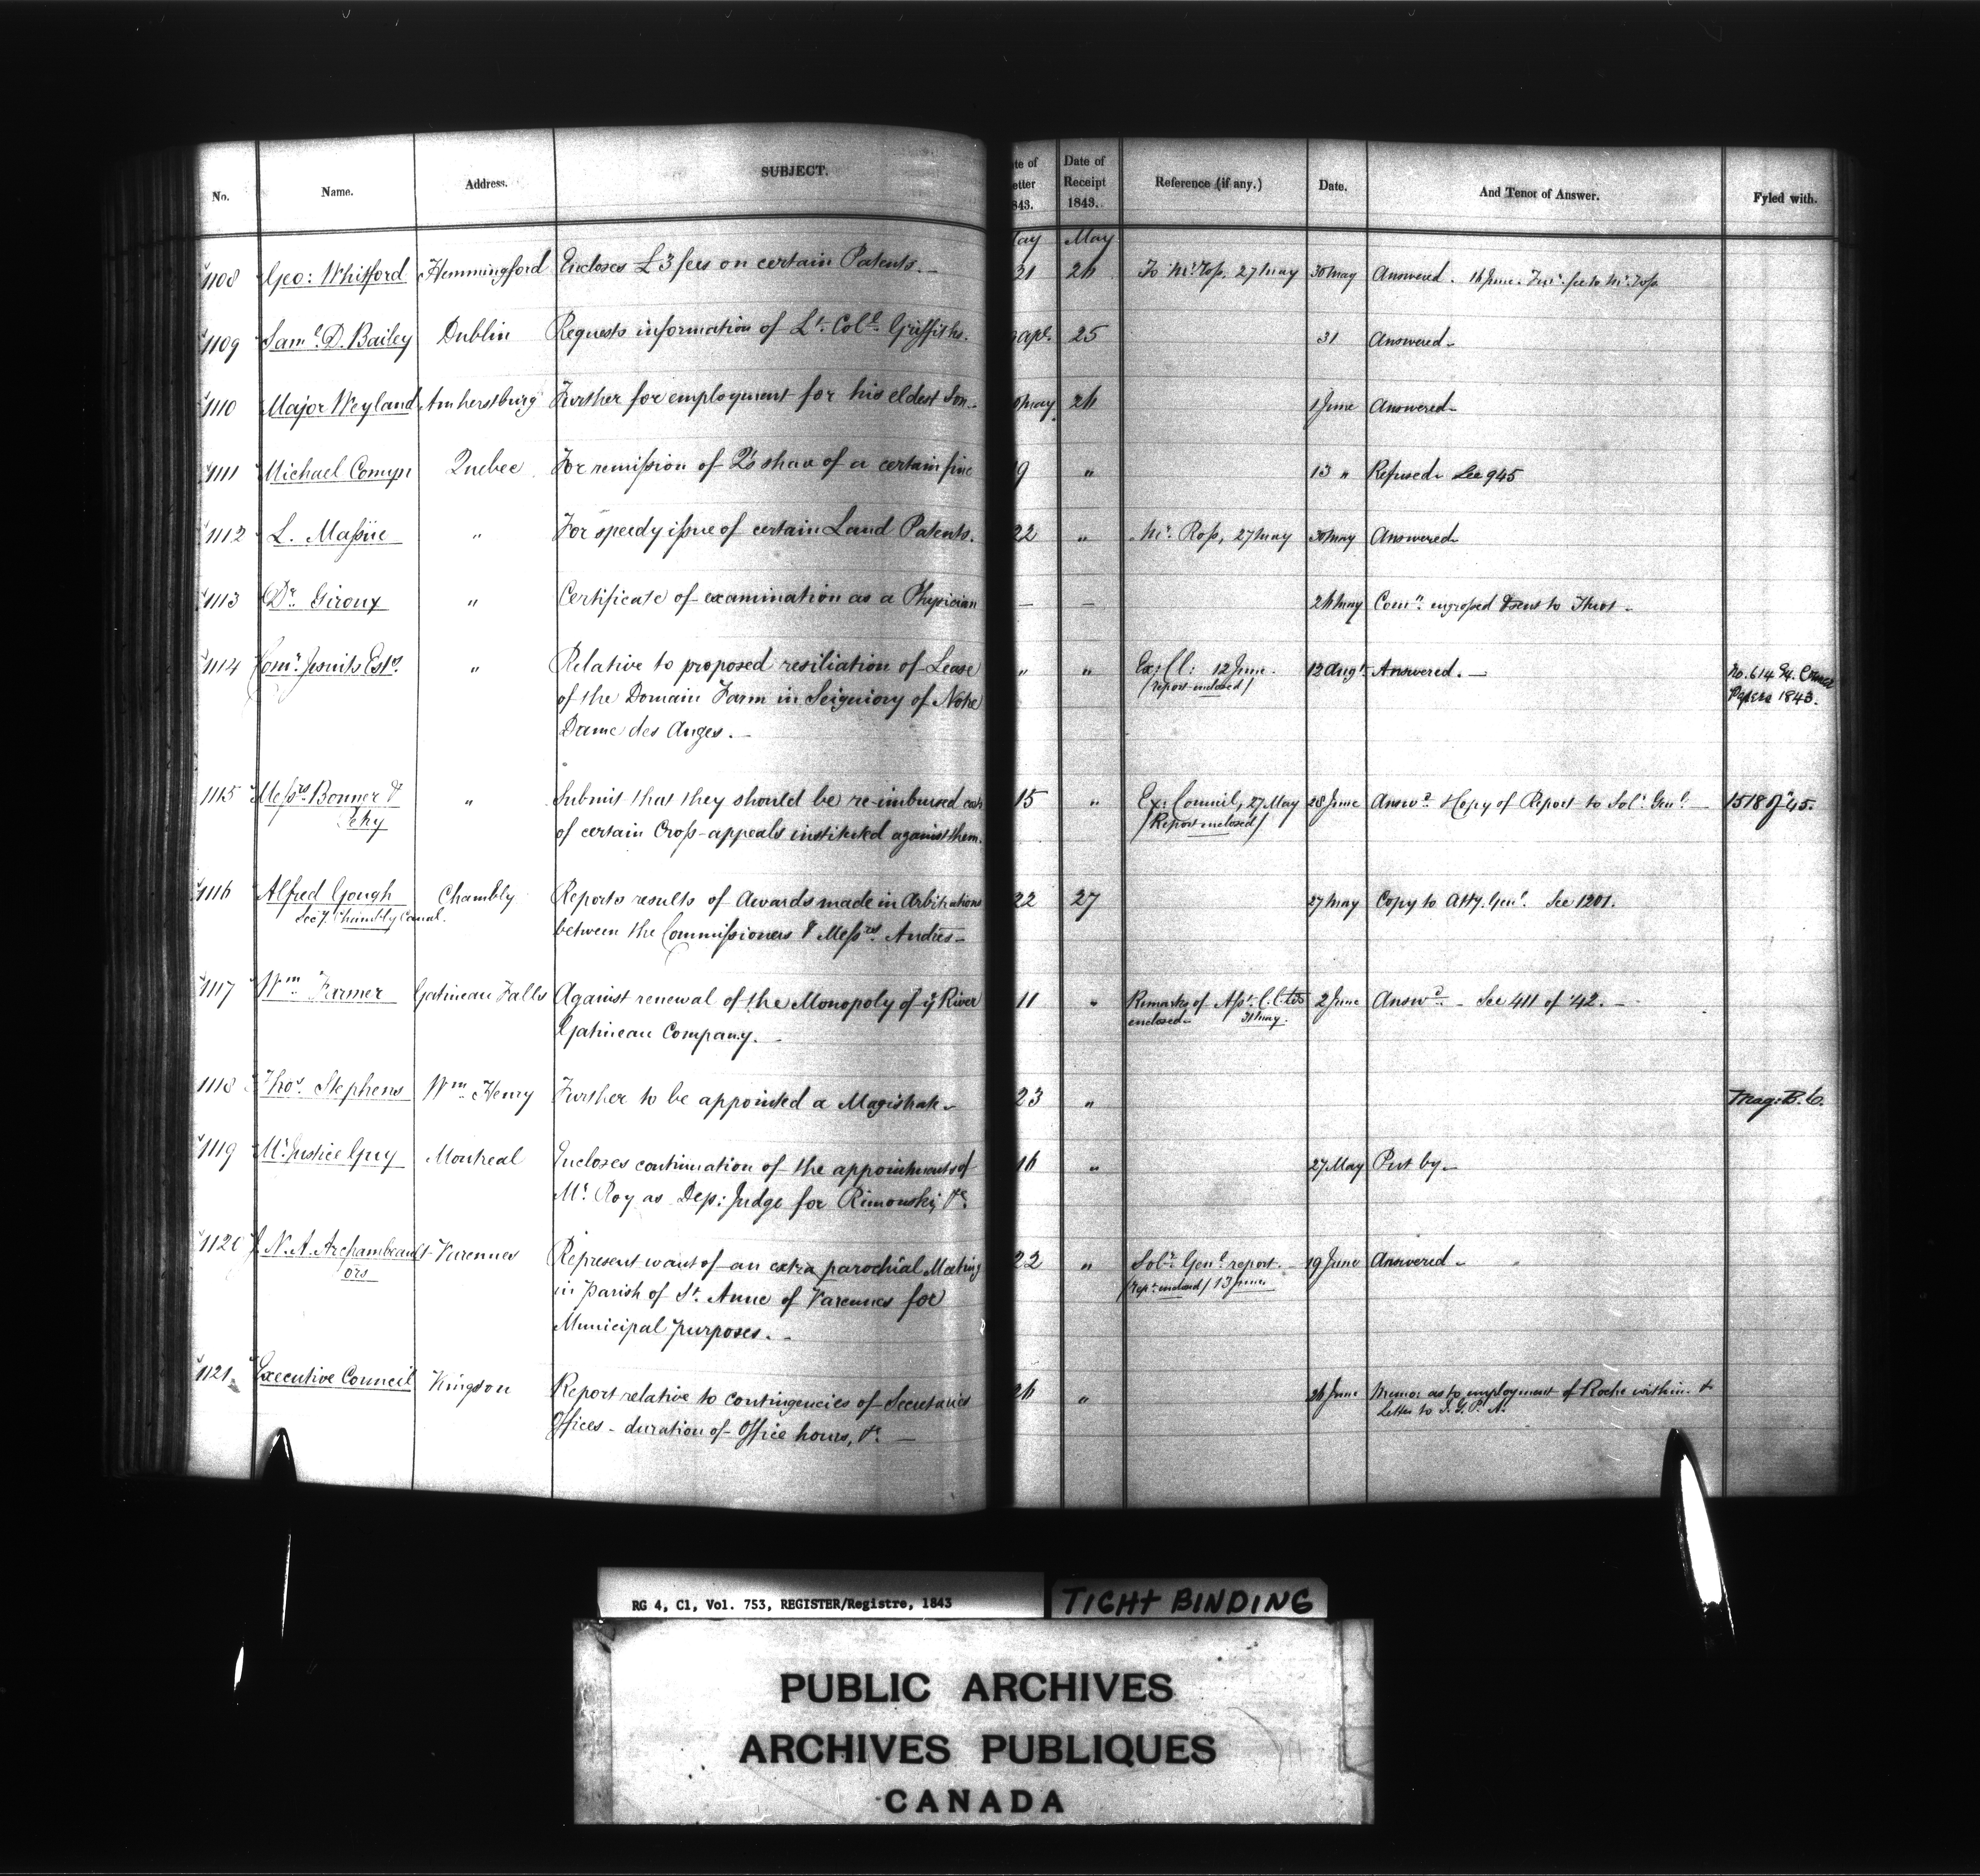 No. Name. Address. SUBJECT. Date of Letter 1843. Date of Receipt 1843. Reference (if any.) Date. And Tenor of Answer. Fyled with.
May May
1108 Geo: Whitford Hemmingford Encloses £3 fees on certain Patents. 31 26 To Mr. Ross, 27 May 30 May Answered. 16 June
1109 Saml. D. Bailey Dublin Requests information of Lt. Coll. Griffiths. Apl. 25 31 Answered
1110 Major Weyland Amherstburg Further for employment for his eldest Son May 26 1 June Answered
1111 Michael Comyn Quebec For remission of Q's share of a certain fine 19 " 13 " Refused See 945
1112 L. Massue " For speedy issue of certain Land Patents. 22 " Mr. Ross, 27 May 30 May Answered
1113 Dr. Giroux " Certificate of examination as a Physician — — 26 May Comn. engrossed & sent to
1114 Comr. Jesuits Ests. " Relative to proposed resiliation of Lease " " Ex: Cl: 12 June. 12 Augt. Answered. No. 614
of the Domain Farm in Seigniory of Notre (report enclosed) Papers 1843.
Dame des Anges.
1115 Messrs. Bonner & " Submit that they should be re-imbursed 15 " Ex: Council, 27 May 28 June Answd. & Copy of Report to Solr. Genl. 1518 of '45.
of certain Cross-appeals instituted against them. (Report enclosed)
1116 Alfred Gough Chambly Reports results of Awards made in Arbitrations 22 27 27 May Copy to Atty. Genl. See 1201.
Secy. Chambly Canal. between the Commissioners & Messrs. Andres
1117 Wm. Farmer Gatineau Falls Against renewal of the Monopoly of ye River 11 " Remarks of Asst. 2 June Answd. See 411 of '42.
Gatineau Company. enclosed 31 May.
1118 Thos. Stephens Wm. Henry Further to be appointed a Magistrate 23 " Mag:
1119 Mr. Justice Guy Montreal Encloses continuation of the appointments of 16 " 27 May Put by
Mr. Roy as Dep: Judge for Rimouski, &c.
1120 J. N. A. Archambeault Varennes Represent want of an extra parochial Meeting 22 " Solr. Genl. report. 19 June Answered
& ors in Parish of St. Anne of Varennes for (Rept. enclosed) 13 June
Municipal purposes.
1121 Executive Council Kingston Report relative to contingencies of Secretaries 26 " 26 June Memo: as to employment of Roche within. &
Offices - duration of Office hours, &c. Letter to I. G. P. A.
RG 4, C1, Vol. 753, REGISTER/Registre, 1843
TIGHT BINDING
PUBLIC ARCHIVES
ARCHIVES PUBLIQUES
CANADA